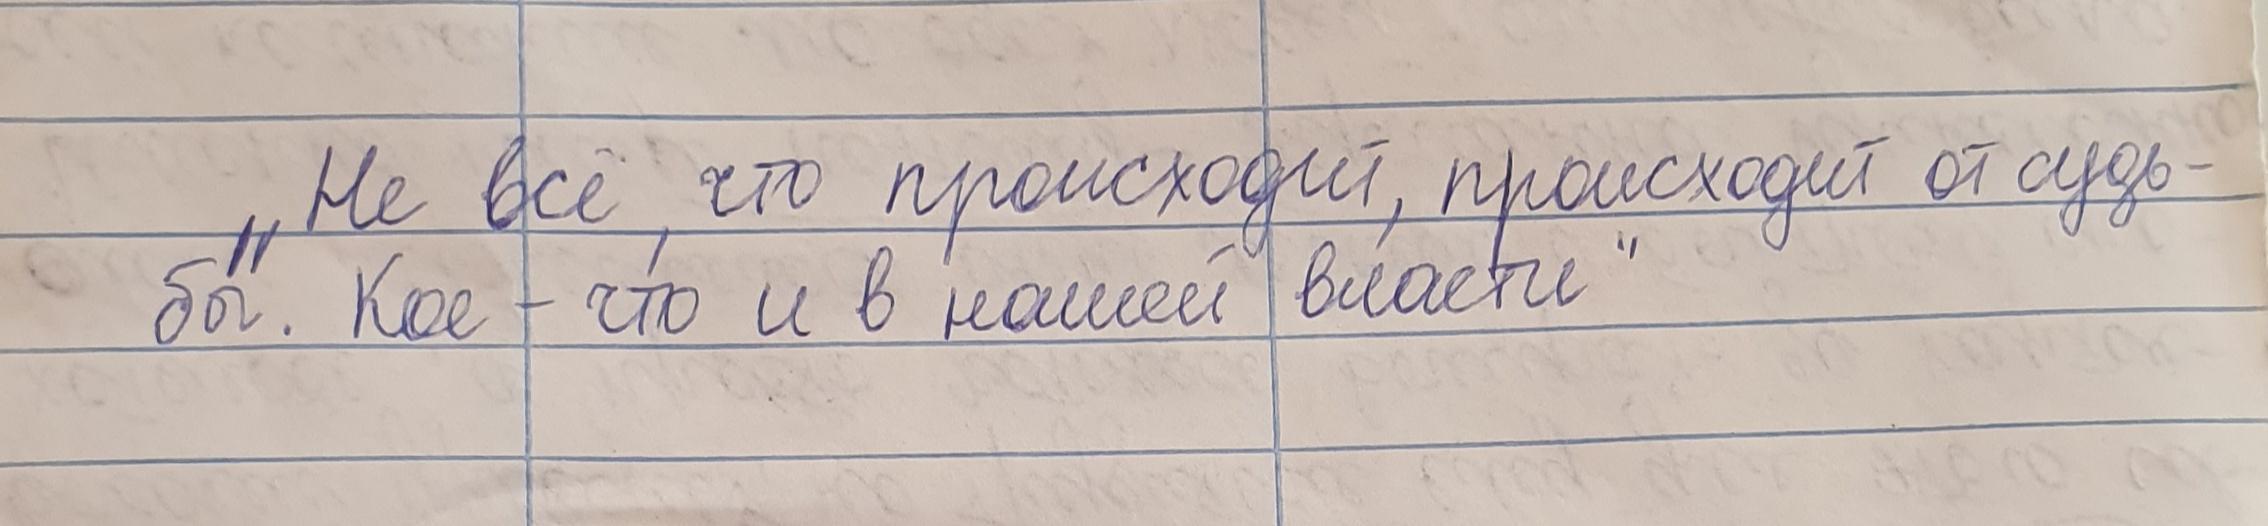 „Не всё, что происходит, происходит от судь-
бы. Кое-что и в нашей власти"